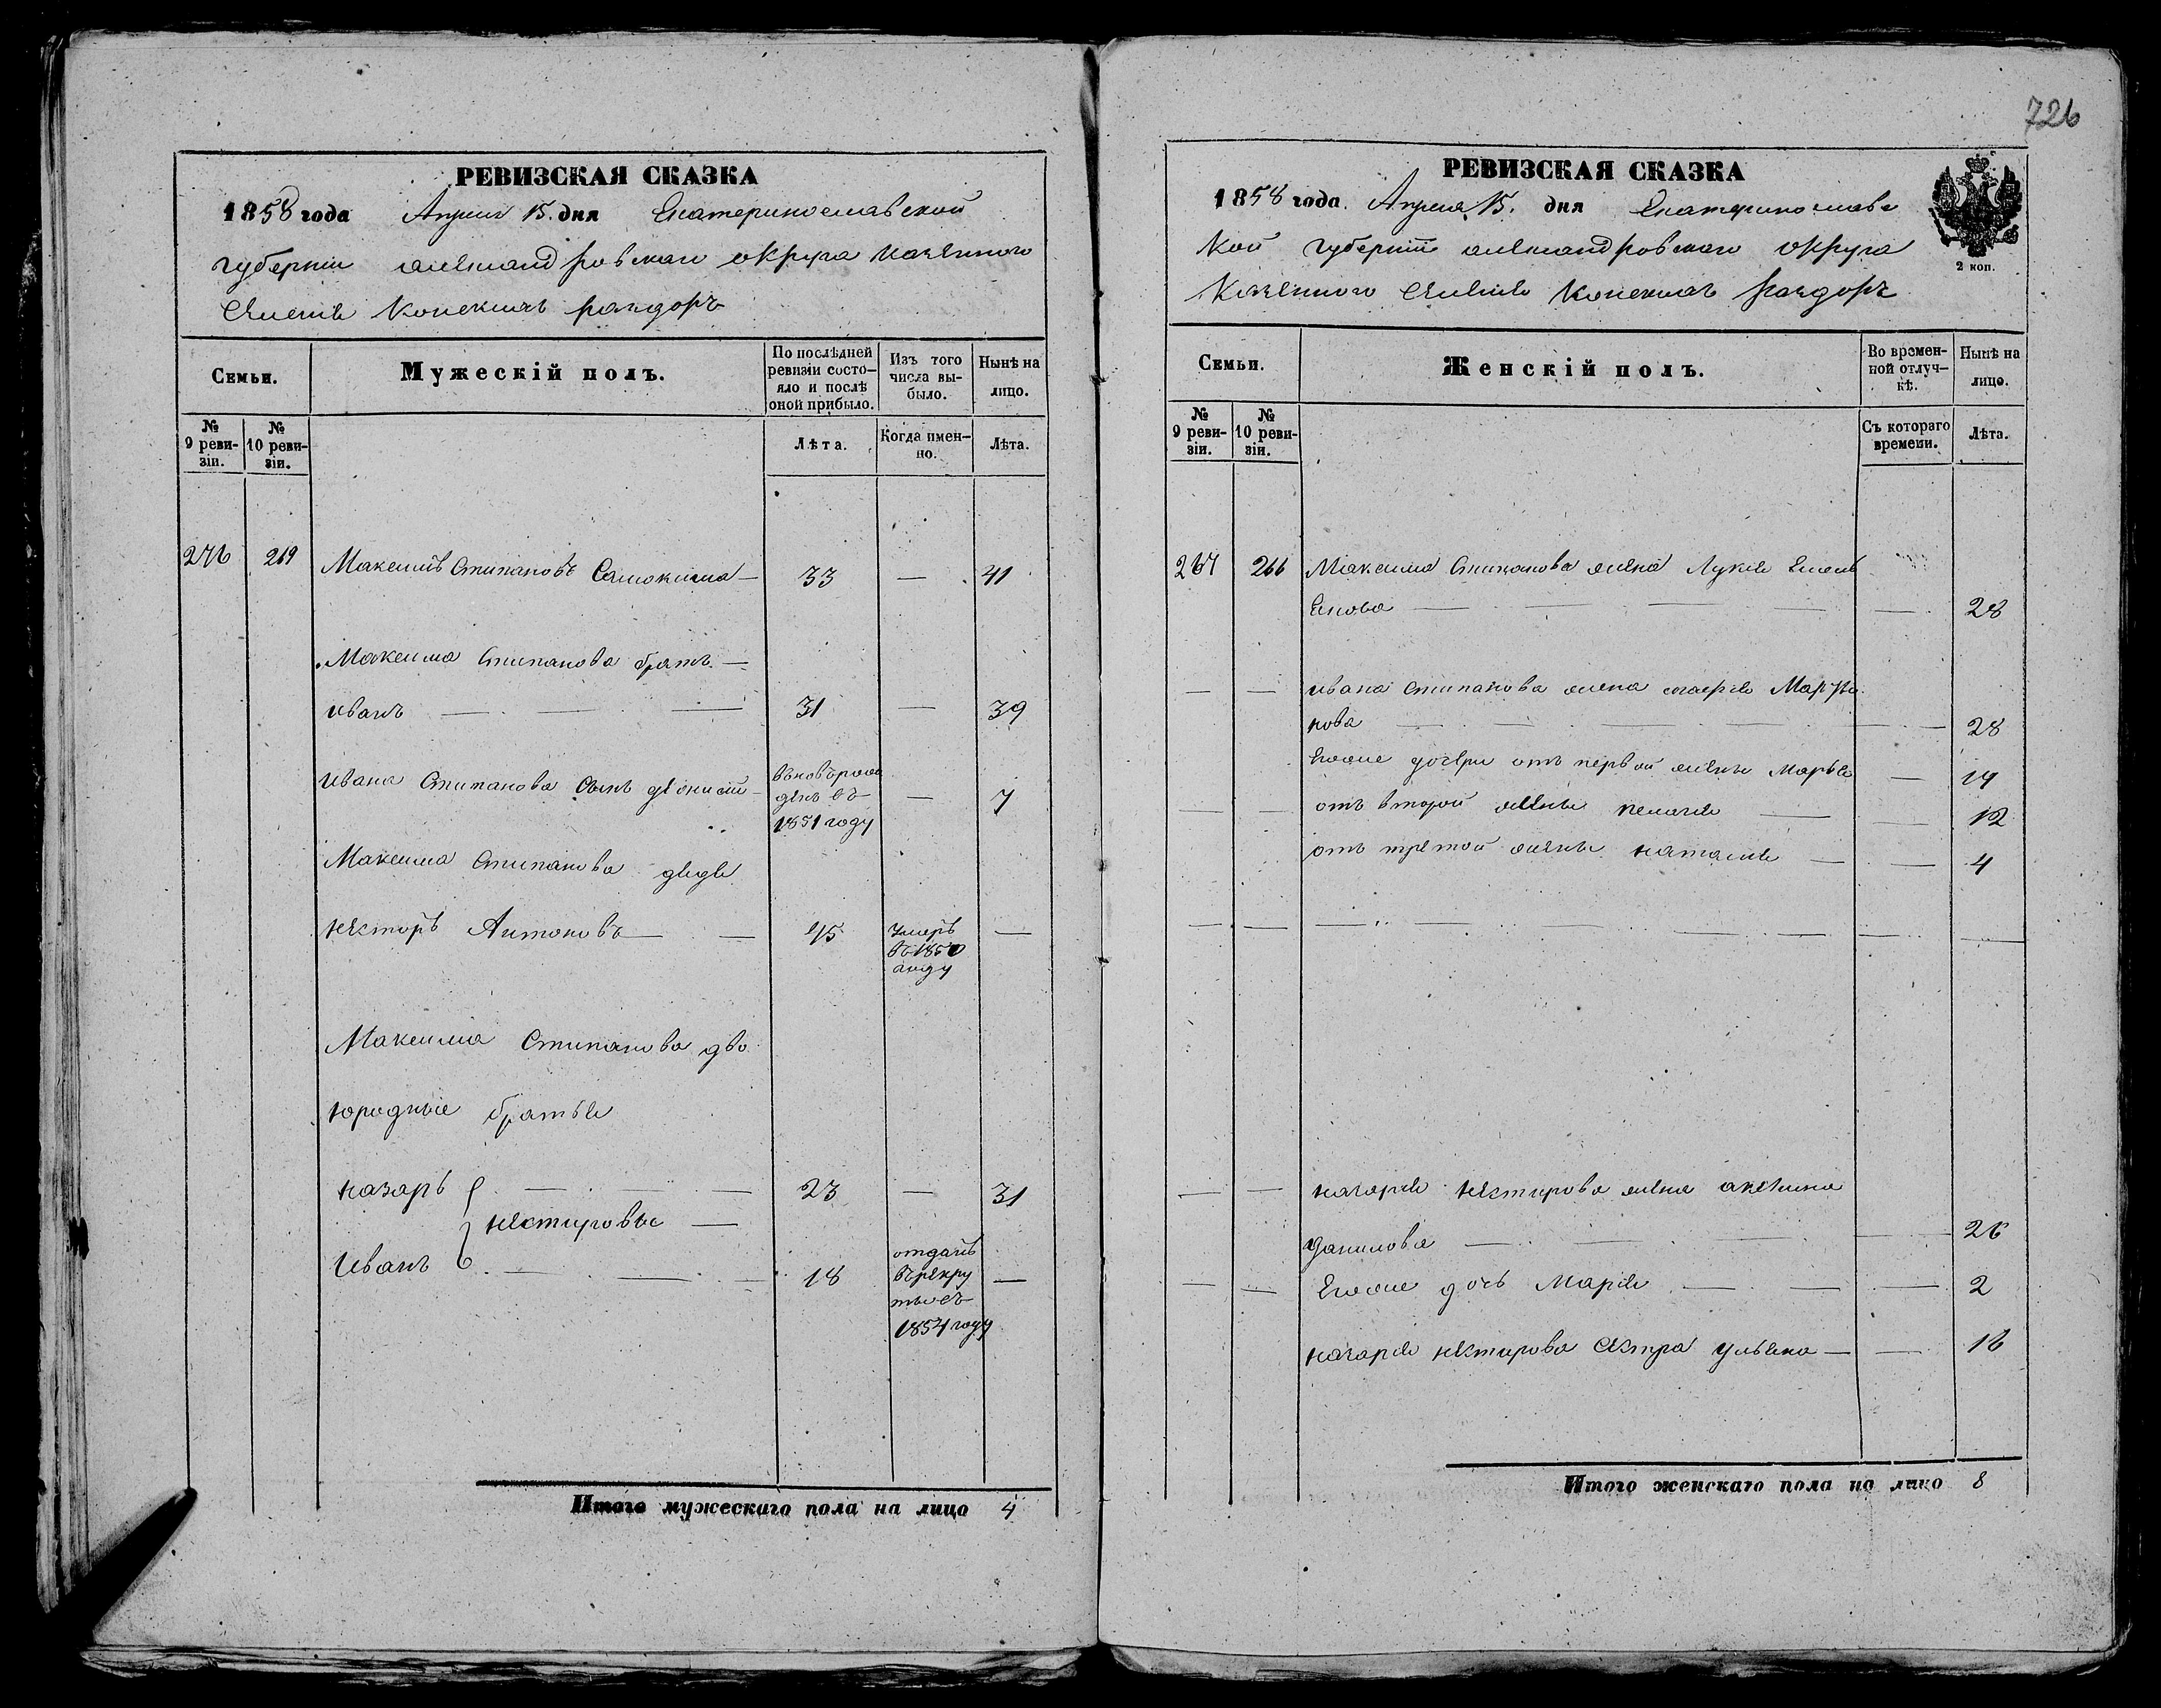 726
РЕВИЗСКАЯ СКАЗКА
1858 года Апреля 15. дня Екатеринославской
губернии александровскаго округа казенного
селения Конскихъ раздоръ
Семьи.
Мужескій полъ.
По послѣдней ревизіи состо-яло и послѣ оной прибыло.
Изъ того числа вы-было.
Нынѣ на лицо.
№ 9 реви-зіи.
№ 10 реви-зіи.
Лѣта.
Когда имен-но.
Лѣта.
276 269 Максимъ Стипановъ — 33 — 41
Максима Стипанова братъ —
иванъ — — 31 — 39
ивана Стипанова сынъ — въновърож
денъ въ — 7
1851 году
Максима Стипанова дядя
нѣсторъ Антоновъ — — 45 умеръ —
въ 1850
году
Максима Стипанова дво
юродные братья
назаръ — — — 23 — 31
нѣстировы —
Иванъ — — — 18 отданъ
въ рекру
ты въ —
1854 году
Итого мужескаго пола на лицо 4
РЕВИЗСКАЯ СКАЗКА
1858 года. Апреля 15. дня Екатеринославс
кой губерніи александровскаго округа
Казенного селения Конскихъ раздоръ
2 коп.
Семьи.
Женскій полъ.
Во времен-ной отлуч-кѣ.
Нынѣ на лицо.
№ 9 реви-зіи.
№ 10 реви-зіи.
Съ котораго времени.
Лѣта.
267 266 Максима Стипанова жена Лукия Емель
енова — — — — 28
— — ивана стипанова жена
нова — — — — 28
Егоже дочери отъ первой жены Марья — 14
— — отъ второй жены пелагея — — 12
отъ третой жены наталия — — 4
— — — — — — — — —
— — назария нѣстирова жена аксиния
Данилова — — — — 26
— — Егоже дочь Мария — — — 2
назария нѣстирова сестра ульяна — — 16
Итого женскаго пола на лицо 8